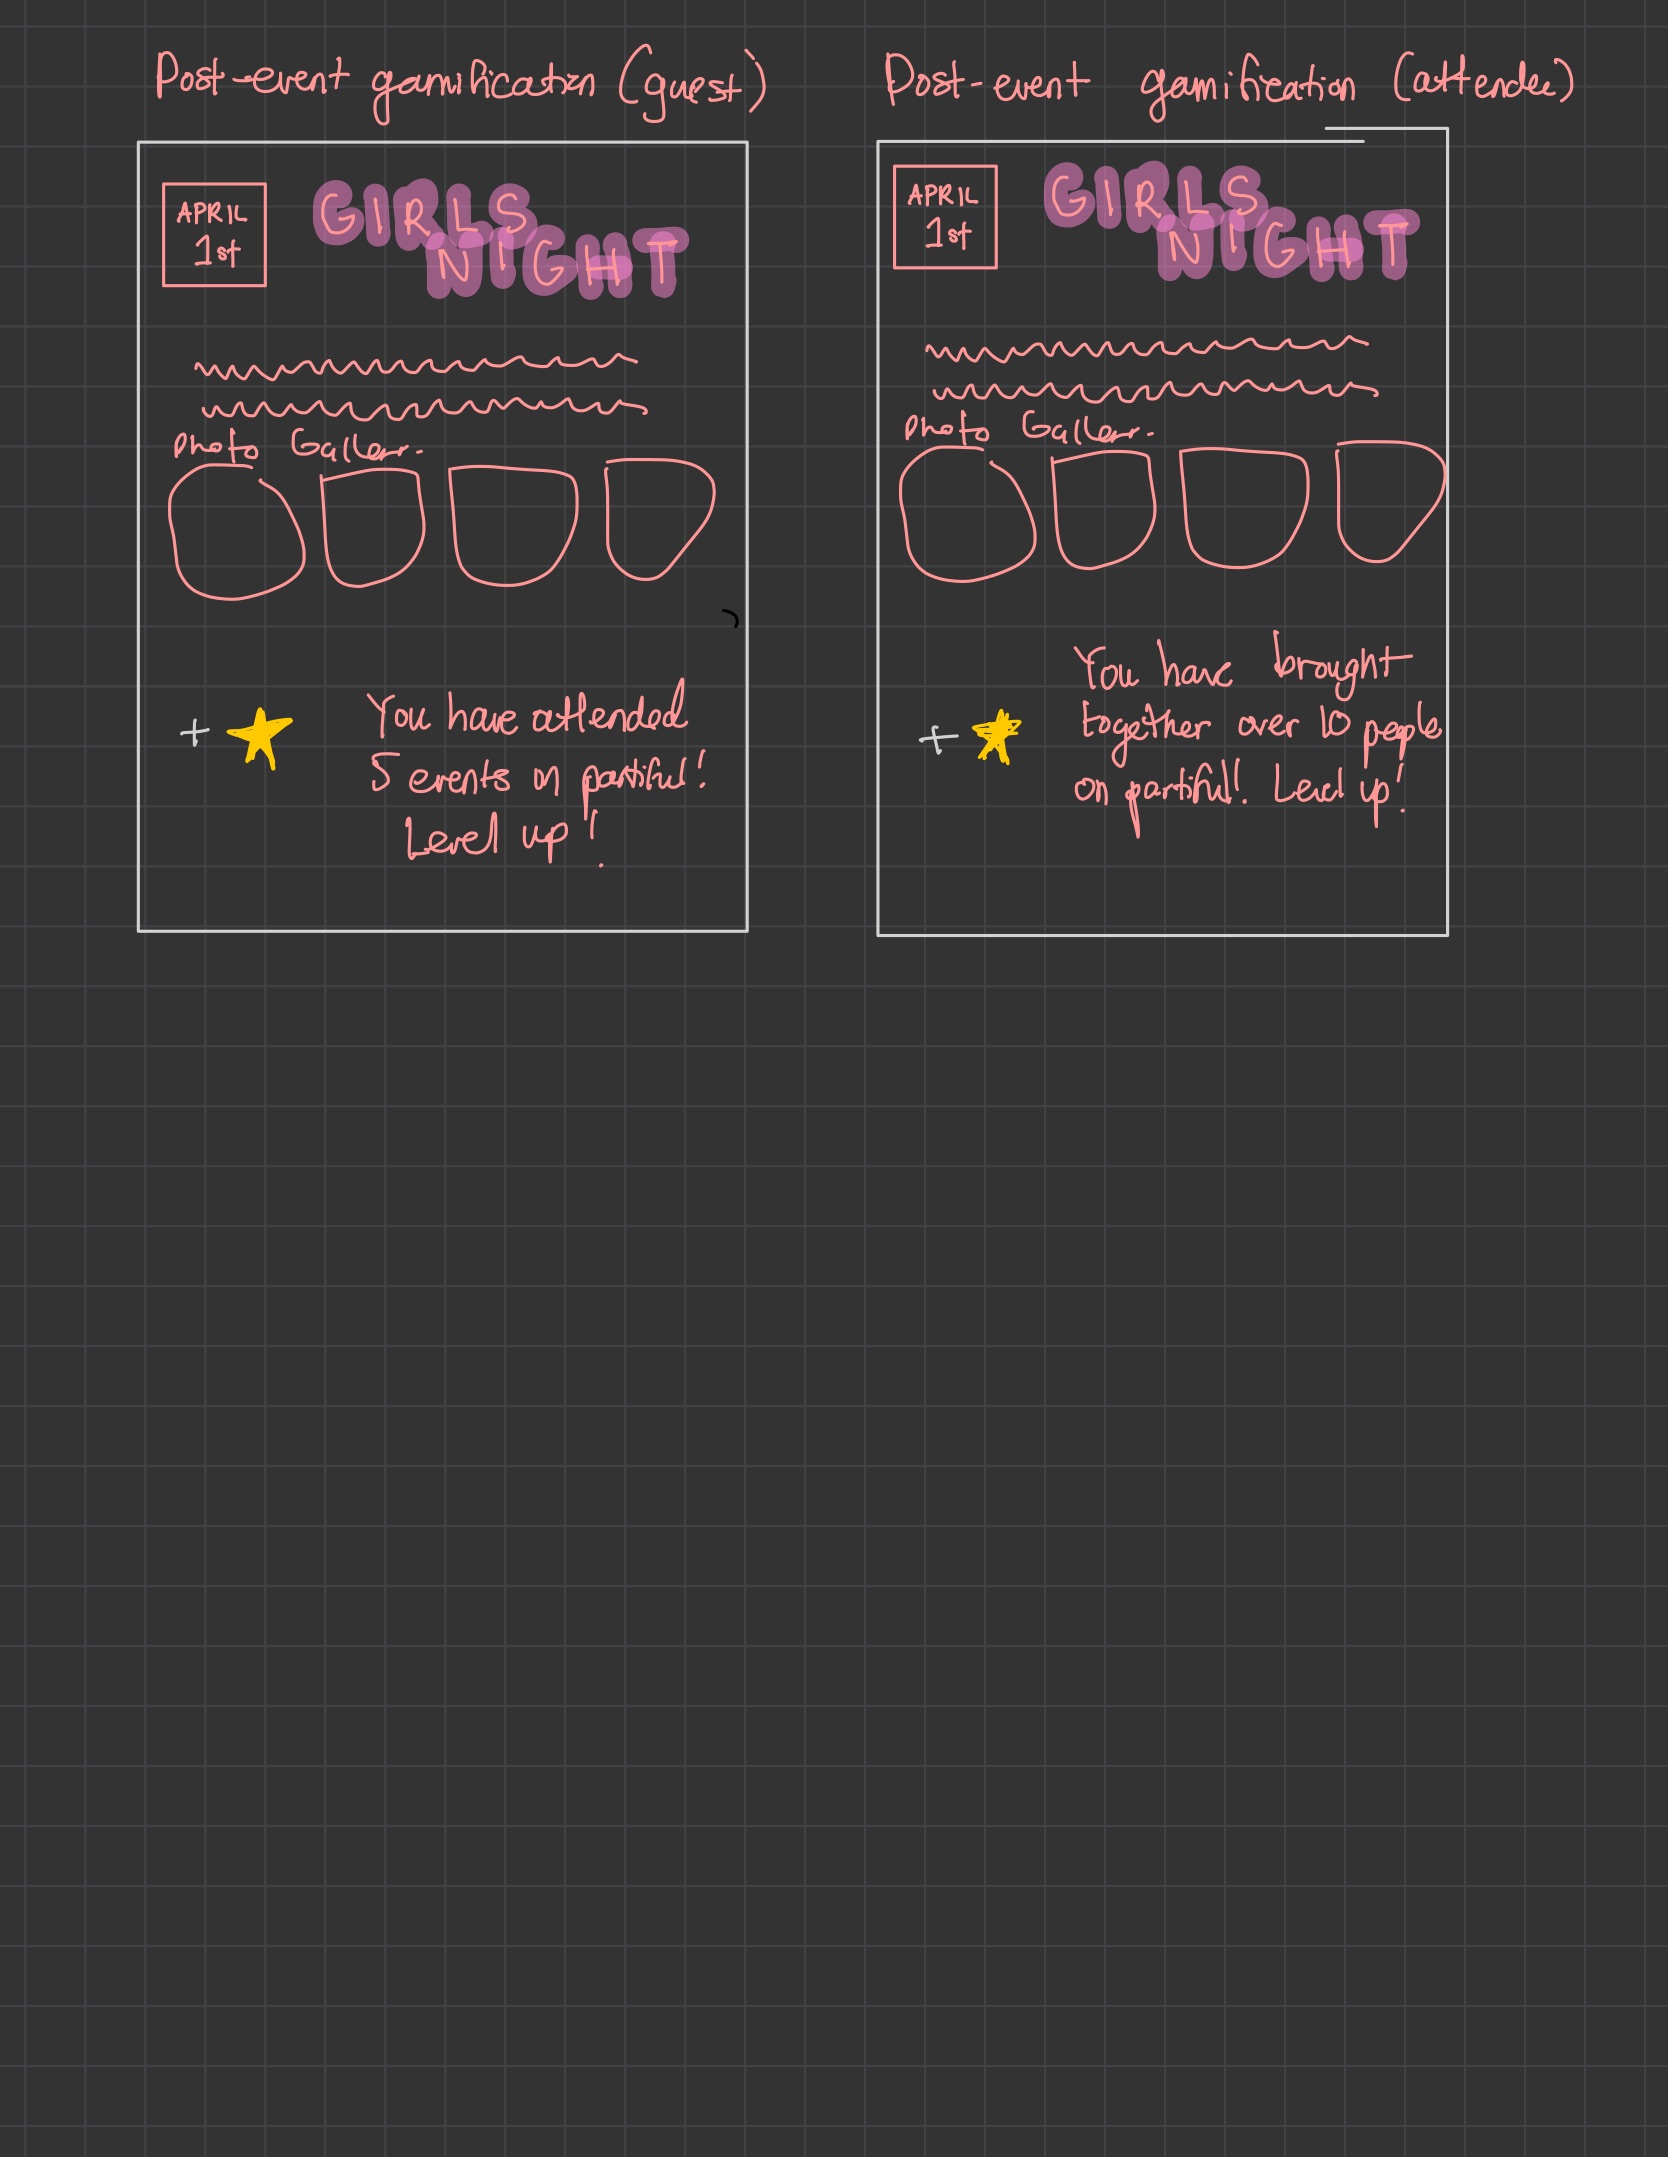 Post-event gamification (guest)
APRIL
1st
GIRLS
NIGHT
Photo Gallery.
+
You have attended
5 events on partiful!
Level up!
Post-event gamification (attendee)
APRIL
1st
GIRLS
NIGHT
Photo Gallery.
+
You have brought
together over 10 people
on partiful! Level up!